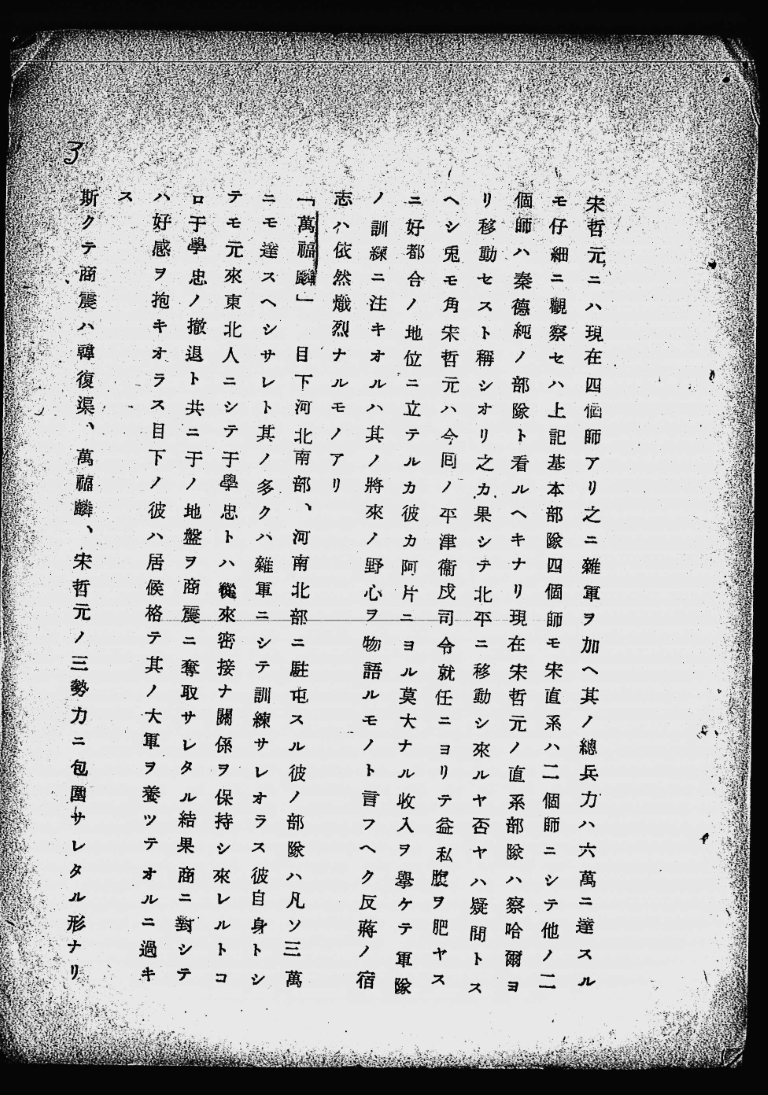 宋哲元ニハ現在四個師アリ之ニ雜軍ヲ加ヘ其ノ總兵力ハ六萬ニ達スル
モ仔細ニ觀察セハ上記基本部隊四個師モ宋直系ハ二個師ニシテ他ノ二
個師ハ秦德純ノ部隊ト看ルヘキナリ現在宋哲元ノ直系部隊ハ察哈爾ヨ
リ移動セスト稱シオリ之カ果シテ北平ニ移動シ來ルヤ否ヤハ疑問トス
ヘシ兎モ角宋哲元ハ今囘ノ平津衞戍司令就任ニヨリテ益私腹ヲ肥ヤス
ニ好都合ノ地位ニ立テルカ彼カ阿片ニヨル莫大ナル收入ヲ擧ケテ軍隊
ノ訓練ニ注キオルハ其ノ將來ノ野心ヲ物語ルモノト言フヘク反蔣ノ宿
志ハ依然熾烈ナルモノアリ
「萬福麟」 目下河北南部、河南北部ニ駐屯スル彼ノ部隊ハ凡ソ三萬
ニモ達スヘシサレト其ノ多クハ雜軍ニシテ訓練サレオラス彼自身トシ
テモ元來東北人ニシテ于學忠トハ從來密接ナ關係ヲ保持シ來レルトコ
ロ于學忠ノ撤退ト共ニ于ノ地盤ヲ商震ニ奪取サレタル結果商ニ對シテ
ハ好感ヲ抱キオラス目下ノ彼ハ居候格テ其ノ大軍ヲ養ツテオルニ過キ
ス
斯クテ商震ハ韓復渠、萬福麟、宋哲元ノ三勢力ニ包圍サレタル形ナリ
3